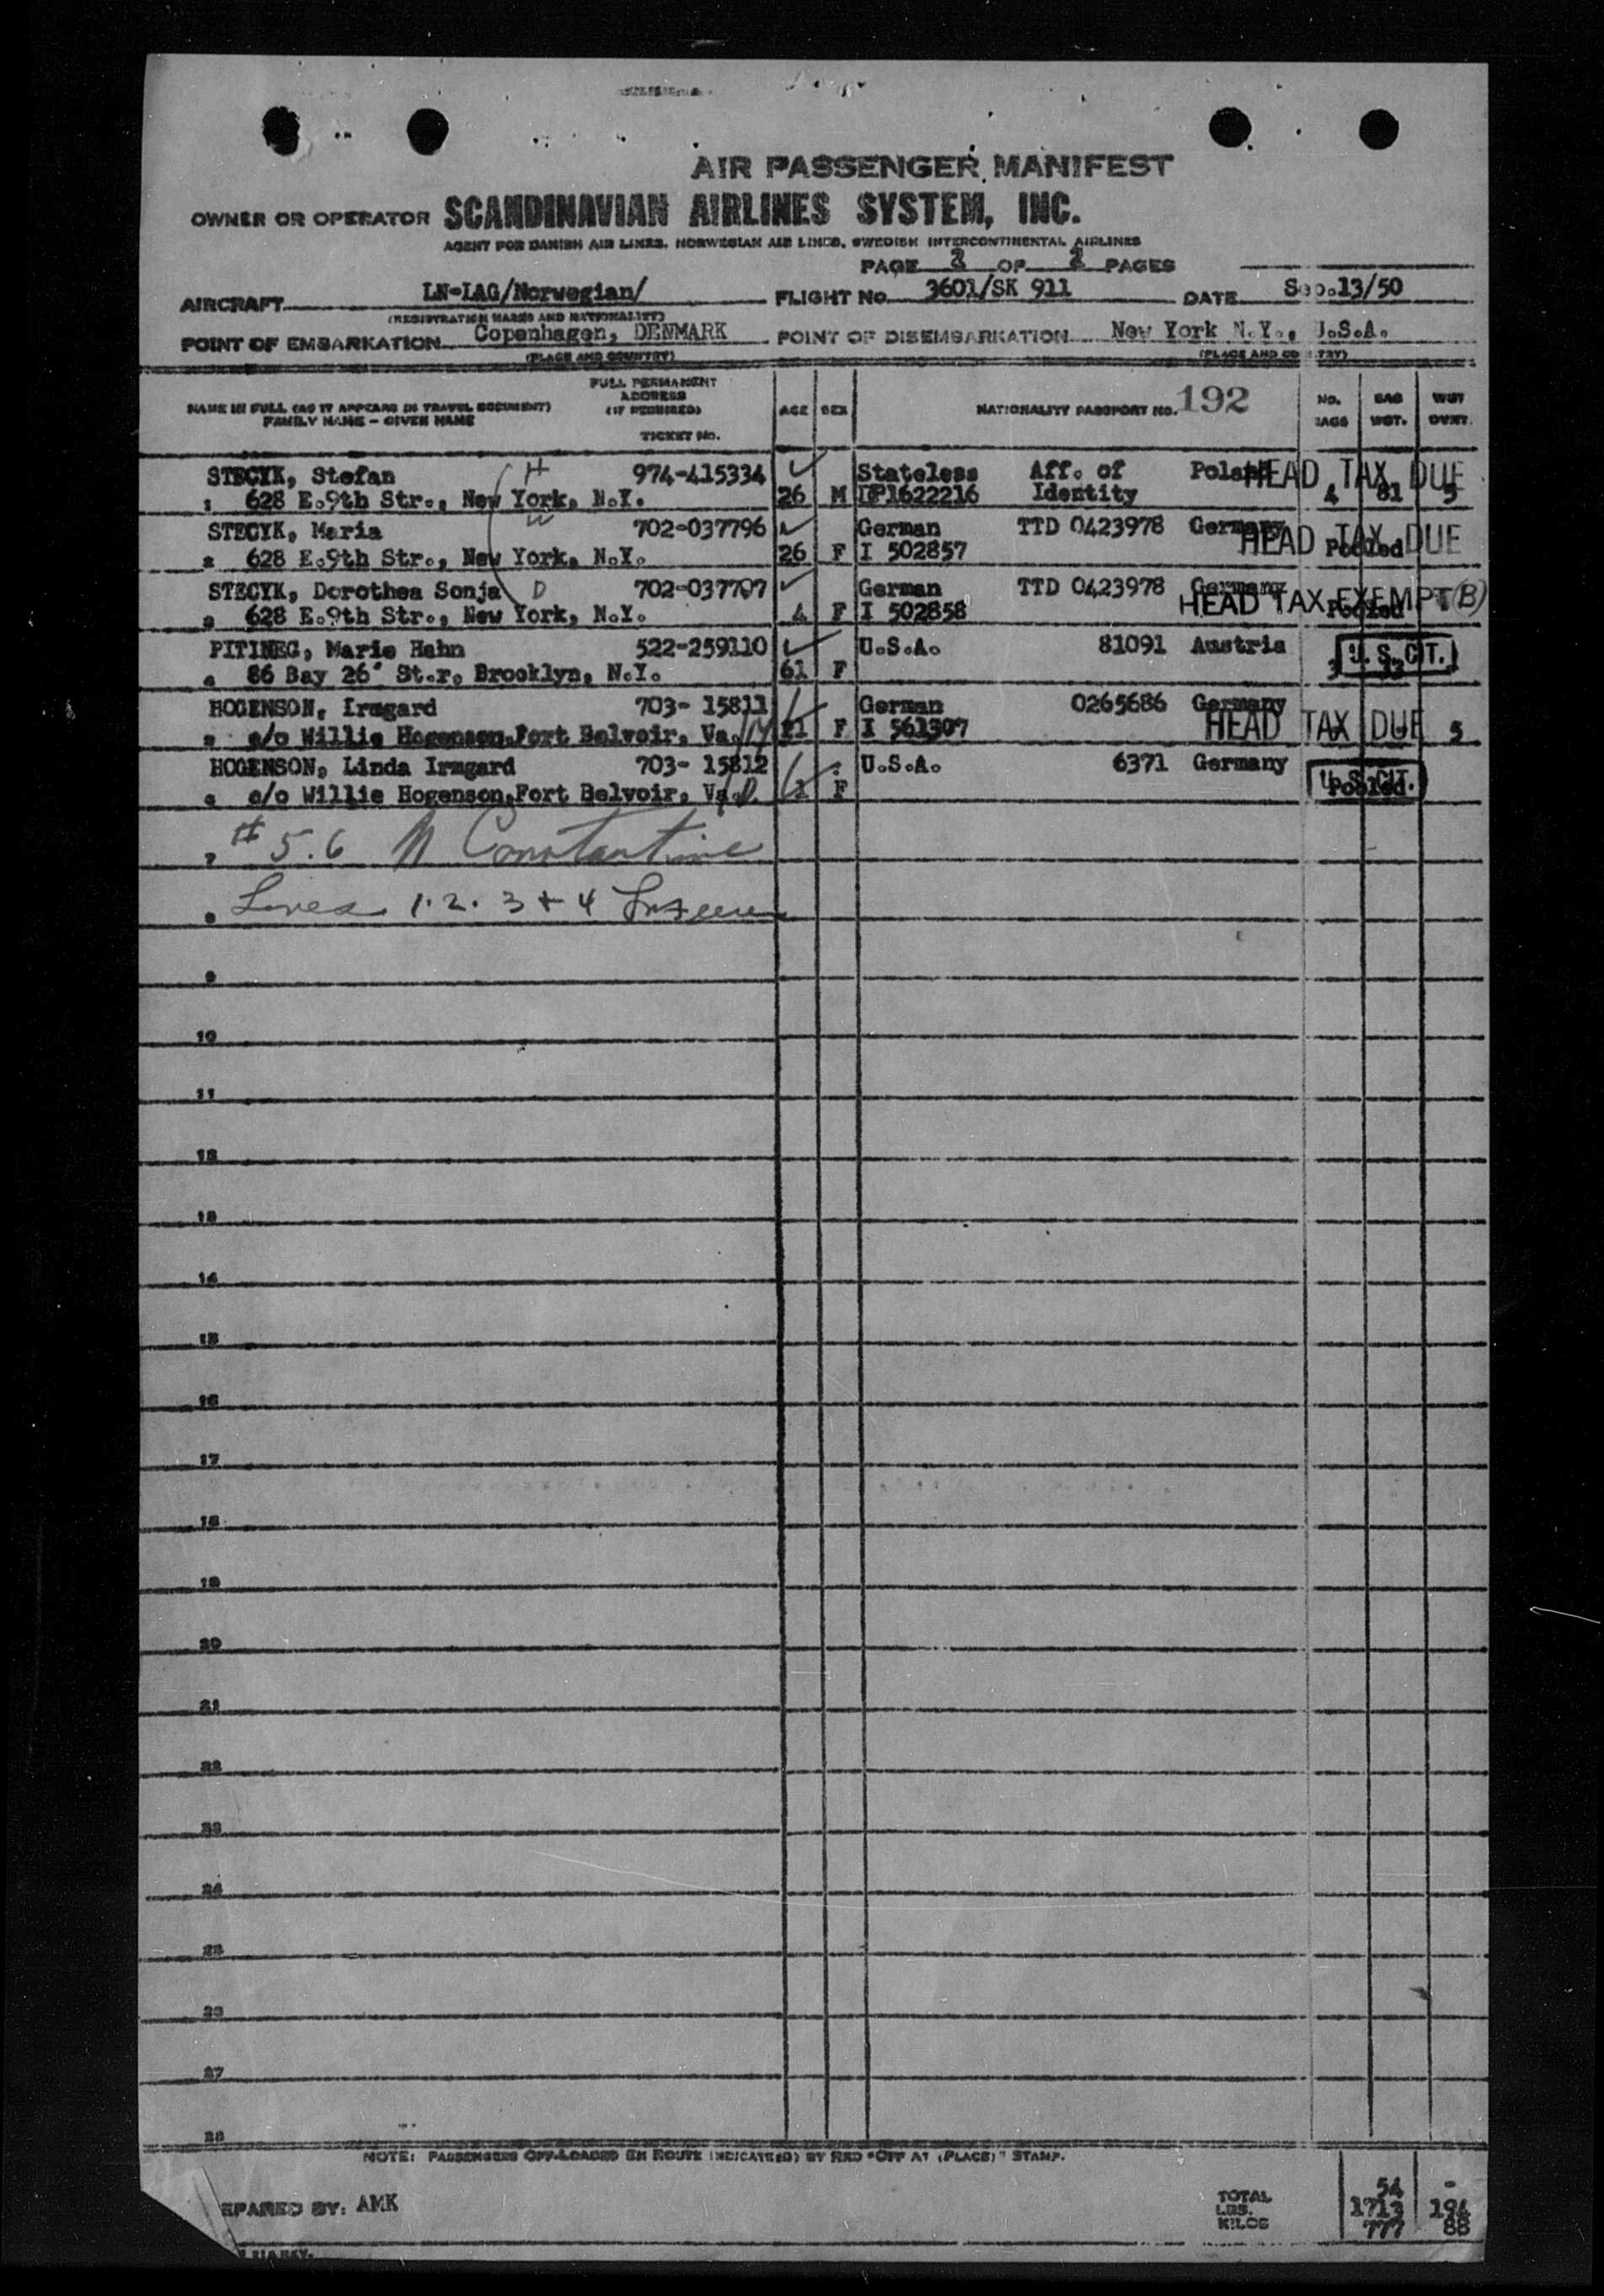 AIR PASSENGER MANIFEST
OWNER OR OPERATOR SCANDINAVIAN AIRLINES SYSTEM, INC.
AGENT FOR DANISH AIR LINES, NORWEGIAN AIR LINES, SWEDISH INTERCONTINENTAL AIRLINES
PAGE 2 OF 2 PAGES
AIRCRAFT LN-IAG/Norwegian/ FLIGHT No. 3601/SK 911 DATE Sep.13/50
(REGISTRATION MARKS AND NATIONALITY)
POINT OF EMBARKATION Copenhagen, DENMARK POINT OF DISEMBARKATION New York N.Y., U.S.A.
(PLACE AND COUNTRY) (PLACE AND COUNTRY)
NAME IN FULL (AS IT APPEARS IN TRAVEL DOCUMENT) FAMILY NAME - GIVEN NAME FULL PERMANENT ADDRESS (IF REQUIRED) TICKET No. AGE SEX NATIONALITY PASSPORT NO. 192 NO. BAGS BAG WGT. WGT OVWT.
STECYK, Stefan H 974-415334 Stateless Aff. of Poland HEAD TAX DUE
1 628 E.9th Str., New York, N.Y. 26 M DP1622216 Identity 4 81 5
STECYK, Maria W 702-037796 German TTD 0423978 Germany HEAD TAX DUE
2 628 E.9th Str., New York, N.Y. 26 F I 502857 Pooled
STECYK, Dorothea Sonja D 702-037797 German TTD 0423978 Germany HEAD TAX EXEMPT (B)
3 628 E.9th Str., New York, N.Y. 4 F I 502858 Pooled
PITINEG, Marie Hahn 522-259110 U.S.A. 81091 Austria U.S. CIT.
4 86 Bay 26' St.r, Brooklyn, N.Y. 61 F
HOGENSON, Irmgard 703- 15811 German 0265686 Germany HEAD TAX DUE
5 c/o Willie Hogenson,Fort Belvoir, Va. 21 F I 561307 5
HOGENSON, Linda Irmgard 703- 15812 U.S.A. 6371 Germany U.S. CIT.
6 c/o Willie Hogenson,Fort Belvoir, Va. D 1 F Pooled.
7 # 5.6 N Constantine
8 Lines 1. 2. 3 + 4
9
10
11
12
13
14
15
16
17
18
19
20
21
22
23
24
25
26
27
28
NOTE: PASSENGERS OFF-LOADED EN ROUTE INDICATED) BY RED "OFF AT (PLACE)" STAMP.
EPARED BY: AMK
TOTAL 54 -
LBS. 1713 194
KILOS 777 88